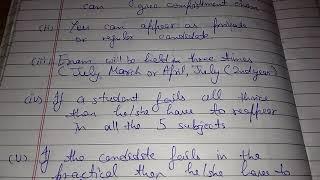 can give compartment exam
(ii) You can appear as private
or regular candidate
(iii) Exam will be held in three times
(July, March or April, July (2nd year)
(iv) If a student fails all three
then he/she have to reappear
in all the 5 subjects
(v) If the candidate fails in the
practical then he/she have to